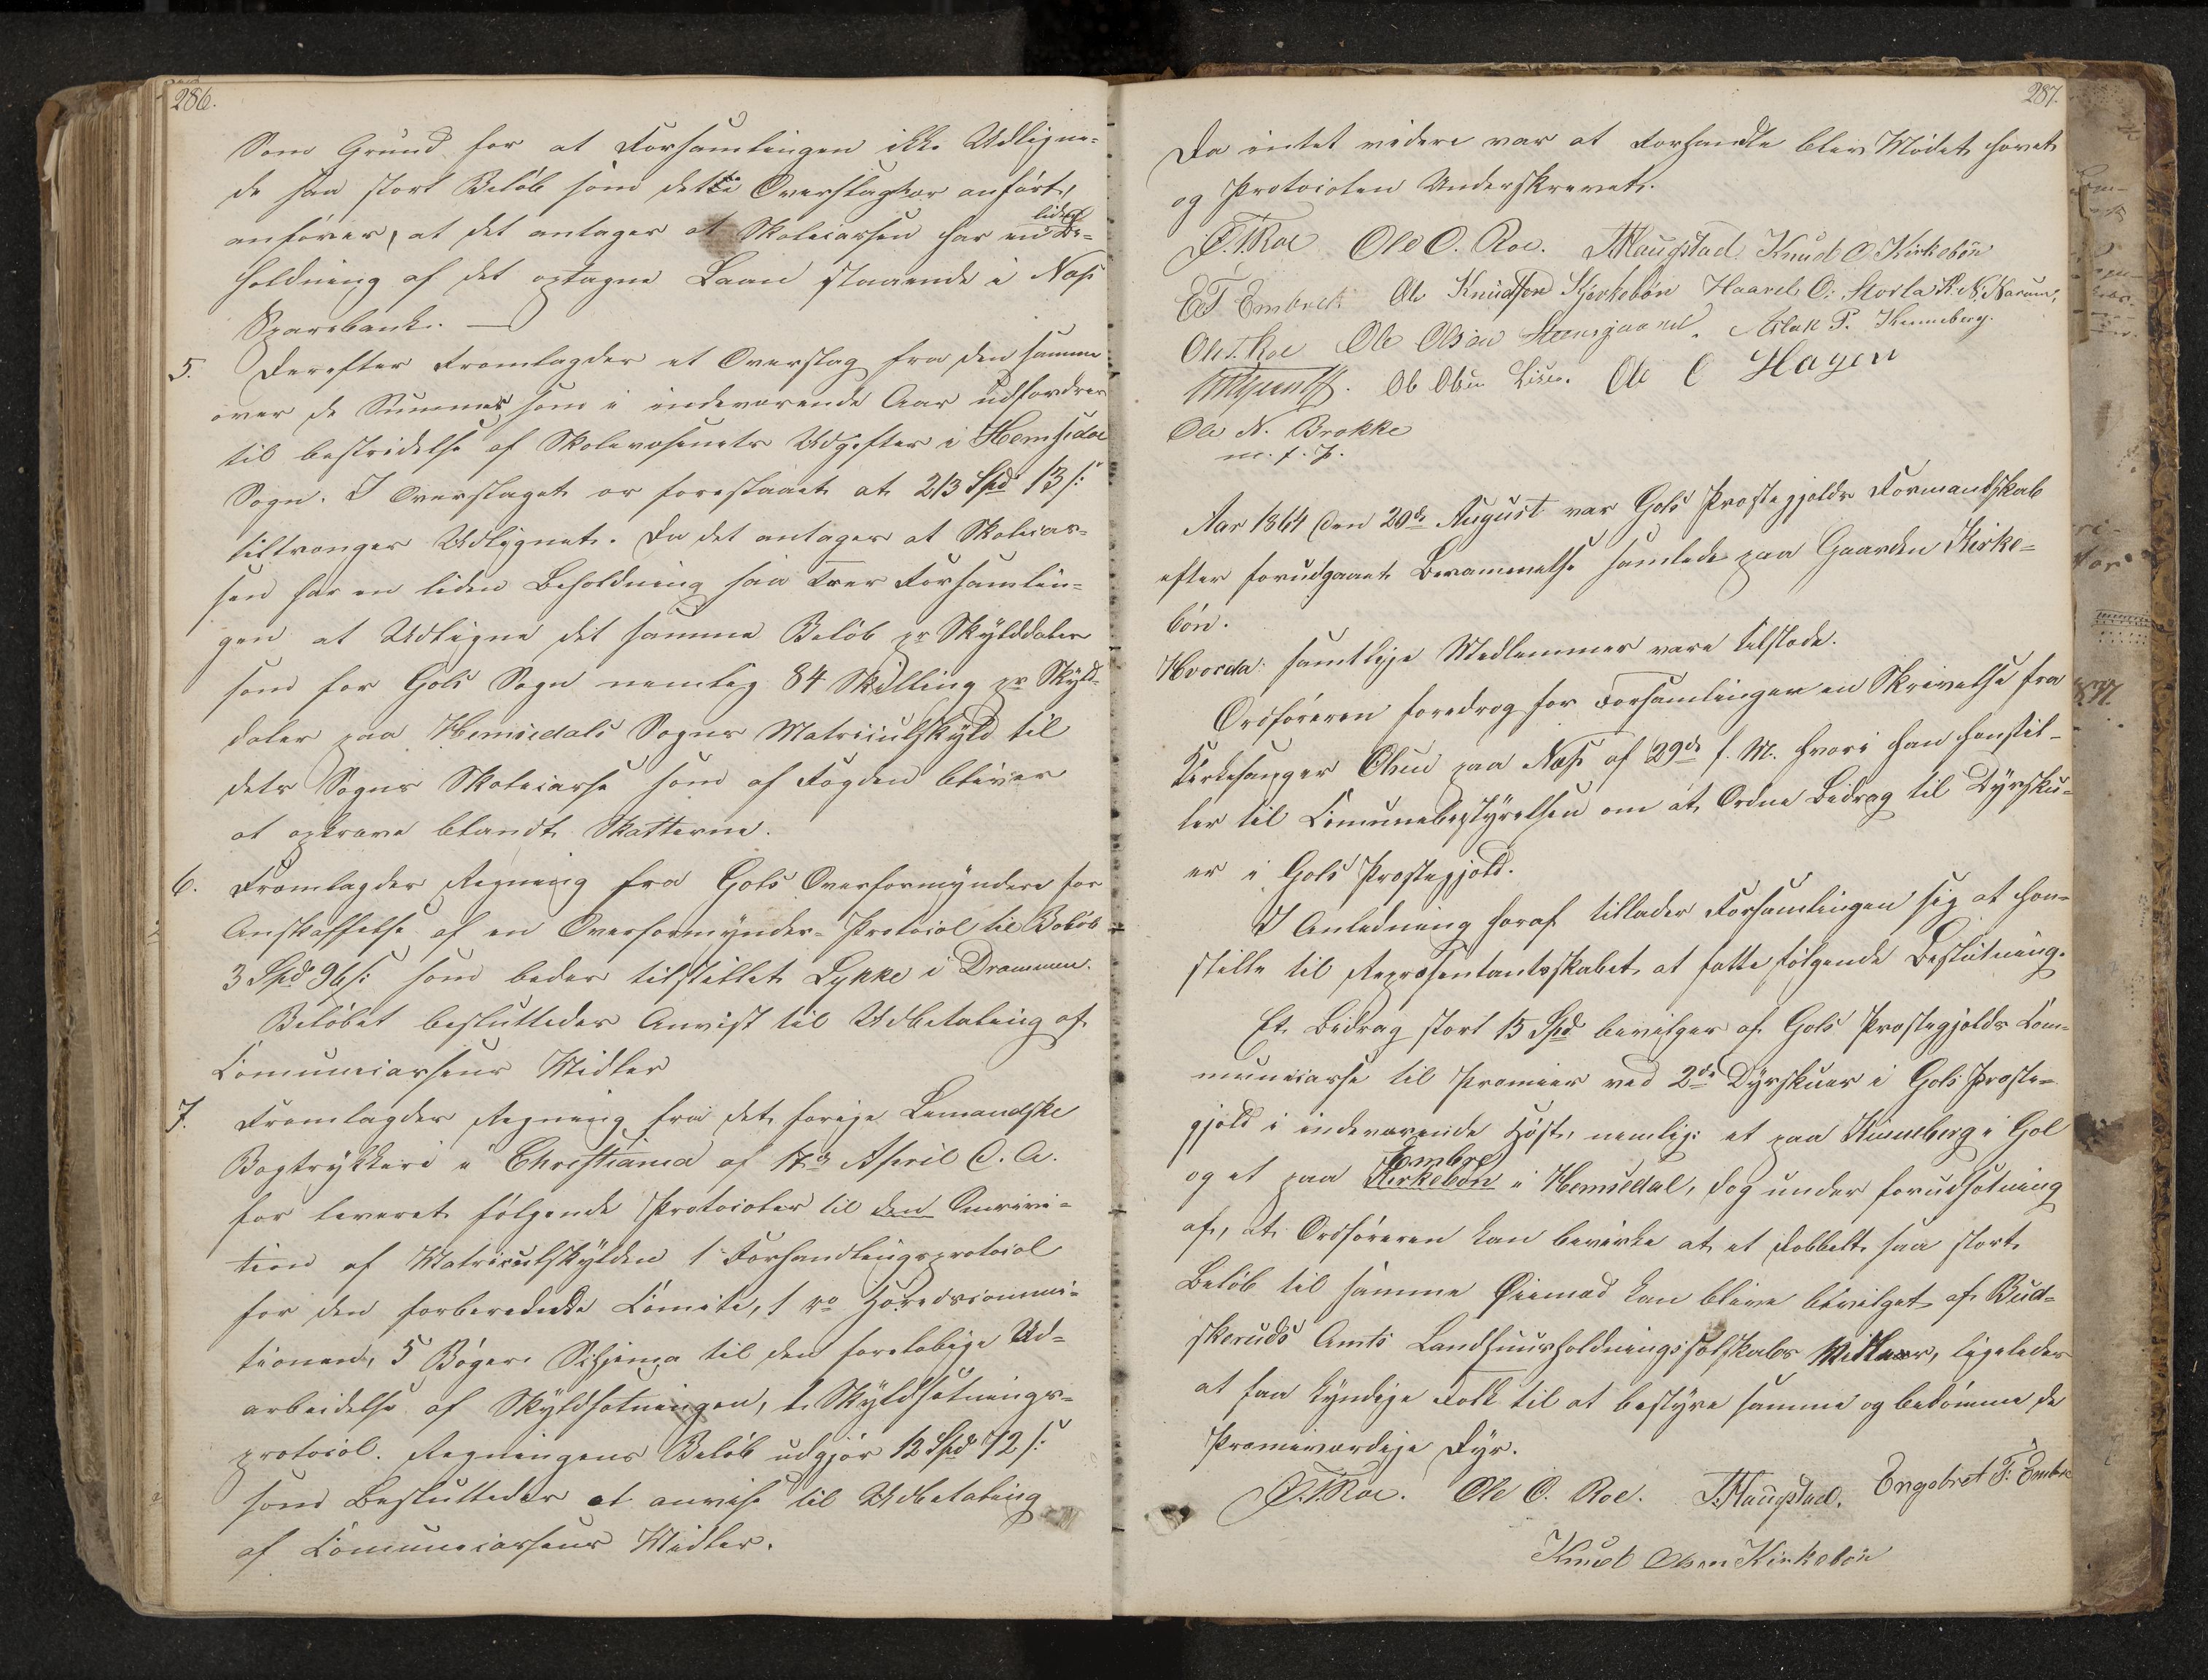 286.
Som Grund for at Forsamlingen ikke Udligne-
de saa stort Beløb som dette Overslag har anført,
anføres, at det antages at Skolecassen har en liden Be-
holdning af det optagne Laan staaende i Næs
Sparebank. —
5. Derefter Fremlagdes et Overslag fra den samme
over de Summer som i indeværende Aar udfordres
til bestridelse af Skolevæsenets Udgifter i Hemsedal
Sogn. I Overslaget er forestaaet at 213 Spd 13 s:
tiltrænges Udlignet. Da det antages at Skolecas-
sen har en liden Beholdning saa troer Forsamlin-
gen at Udligne det samme Beløb pr Skylddaler
som for Gols Sogn nemlig 84 Skilling pr Skyld-
daler paa Hemsedals Sogns Matriculskyld til
dets Sogns Skolecasse som af Fogden bliver
at opkræve blandt Skatterne.
6. Fremlagdes Regning fra Gols Overformyndere for
Anskaffelse af en Overformynder-Protocol til Beløb
3 Spd 96 s: som bedes tilstillet Lykke i Drammen.
Beløbet besluttedes Anvist til Udbetaling af
Communecassens Midler
7. Fremlagdes Regning fra det forige Lemandske
Bogtrykkeri i Christiania af 17de April C. A.
for leveret følgende Protocoler til den
tion af Matriculskylden 1 Forhandlingsprotocol
for den forberedende Comite, 1 do Herredscommi-
tionen, 5 Bøger Schema til den foreløbige Ud-
arbeidelse af Skyldsætningen, 1 Skyldsætnings-
protocol. Regningens Beløb udgjør 12 Spd 72 s:
som Besluttedes at anvise til Udbetaling
af Communecassens Midler.
287.
Da intet videre var at Forhandle blev Mødet hævet
og Protocolen Underskrevet.
T. Roe Ole O. Roe. Haugstad Knud O Kirkebøn
E T Embrek Ole Knudssen Kjerkebøn Haavel O: Storla K. N. Narum,
Ole T. Roe Ole Olsen Steensgaard. Aslak P. Hemeberg.
Ole Olsen Ole O Hagen
Ole N. Brokke
m. f. P.
Aar 1864 den 20de August var Gols Præstegjelds Formandskab
efter forudgaaet Berammelse samlede paa Gaarden Kirke-
bøn.
Hvorda samtlige Medlemmer vare tilstede.
Ordføreren foredrog for Forsamlingen en Skrivelse fra
Kirkesanger Olsen paa Næs af 29de f. M. hvori han henstil-
ler til Communebestyrelsen om at Ordne Bidrag til Dyrsku-
er i Gols Præstegjeld.
I Anledning heraf tillader Forsamlingen sig at hen-
stille til Repræsentantskabet at fatte følgende Beslutning.
Et Bidrag stort 15 Spd bevilges af Gols Præstegjelds Com-
municasse til Præmier ved 2de Dyrskuer i Gols Præste-
gjeld i indeværende Høst, nemlig: et paa Hinneberg i Gol
Embre
og et paa Kirkebøn i Hemsedal, dog under forudsætning
af, at Ordføreren kan bevirke at et dobbelt saa stort
Beløb til samme Øiemed kan blive bevilget af Bud-
skeruds Amts Landhuusholdningsselskabs Midler, ligeledes
at faa kyndige Folk til at bestyre samme og bedømme de
Præmieværdige Dyr.
T. Roe. Ole O. Roe. T. Haugstad. Engebret T: Embre
Knud Olsen Kirkebøn